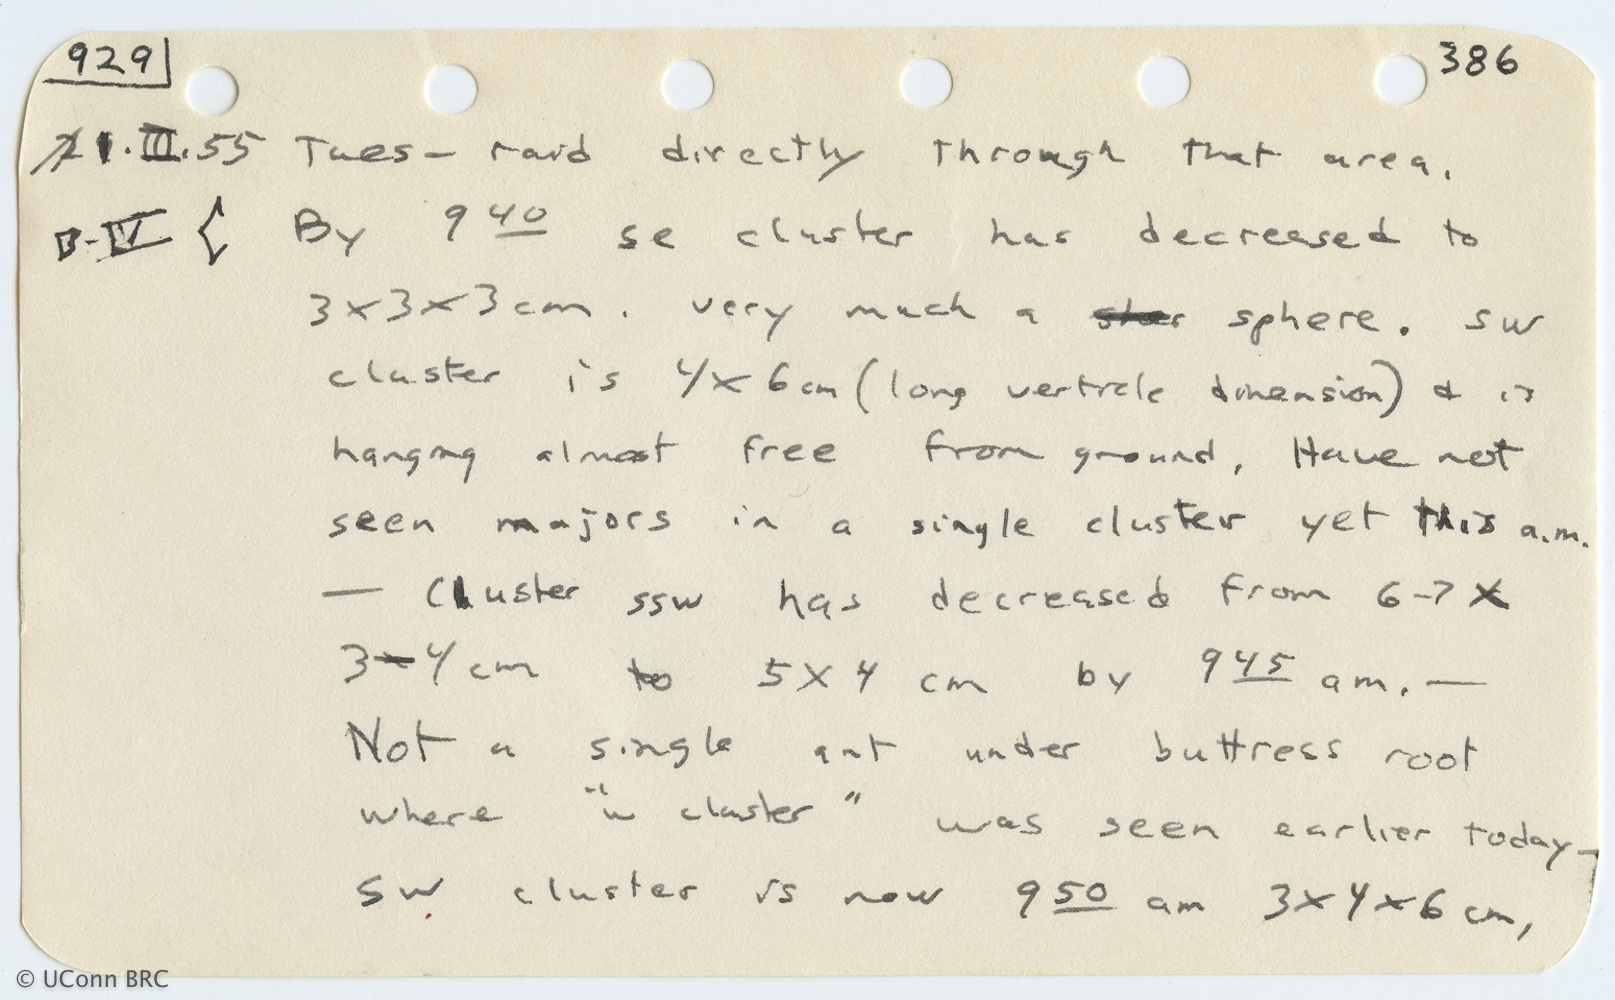 929 386
21.III.55 Tues- raid directly through that area.
B-IV { By 9 40 se cluster has decreased to
3x3x3cm. very much a sphere. SW
cluster is 4x6cm (long verticle dimension) & is
hanging almost free from ground. Have not
seen majors in a single cluster yet this a.m.
— Cluster ssw has decreased from 6-7 X
3-4 cm to 5X4 cm by 9 45 am. —
Not a single ant under buttress root
where "w cluster" was seen earlier today-
SW cluster is now 9 50 am 3x4x6 cm,
© UConn BRC